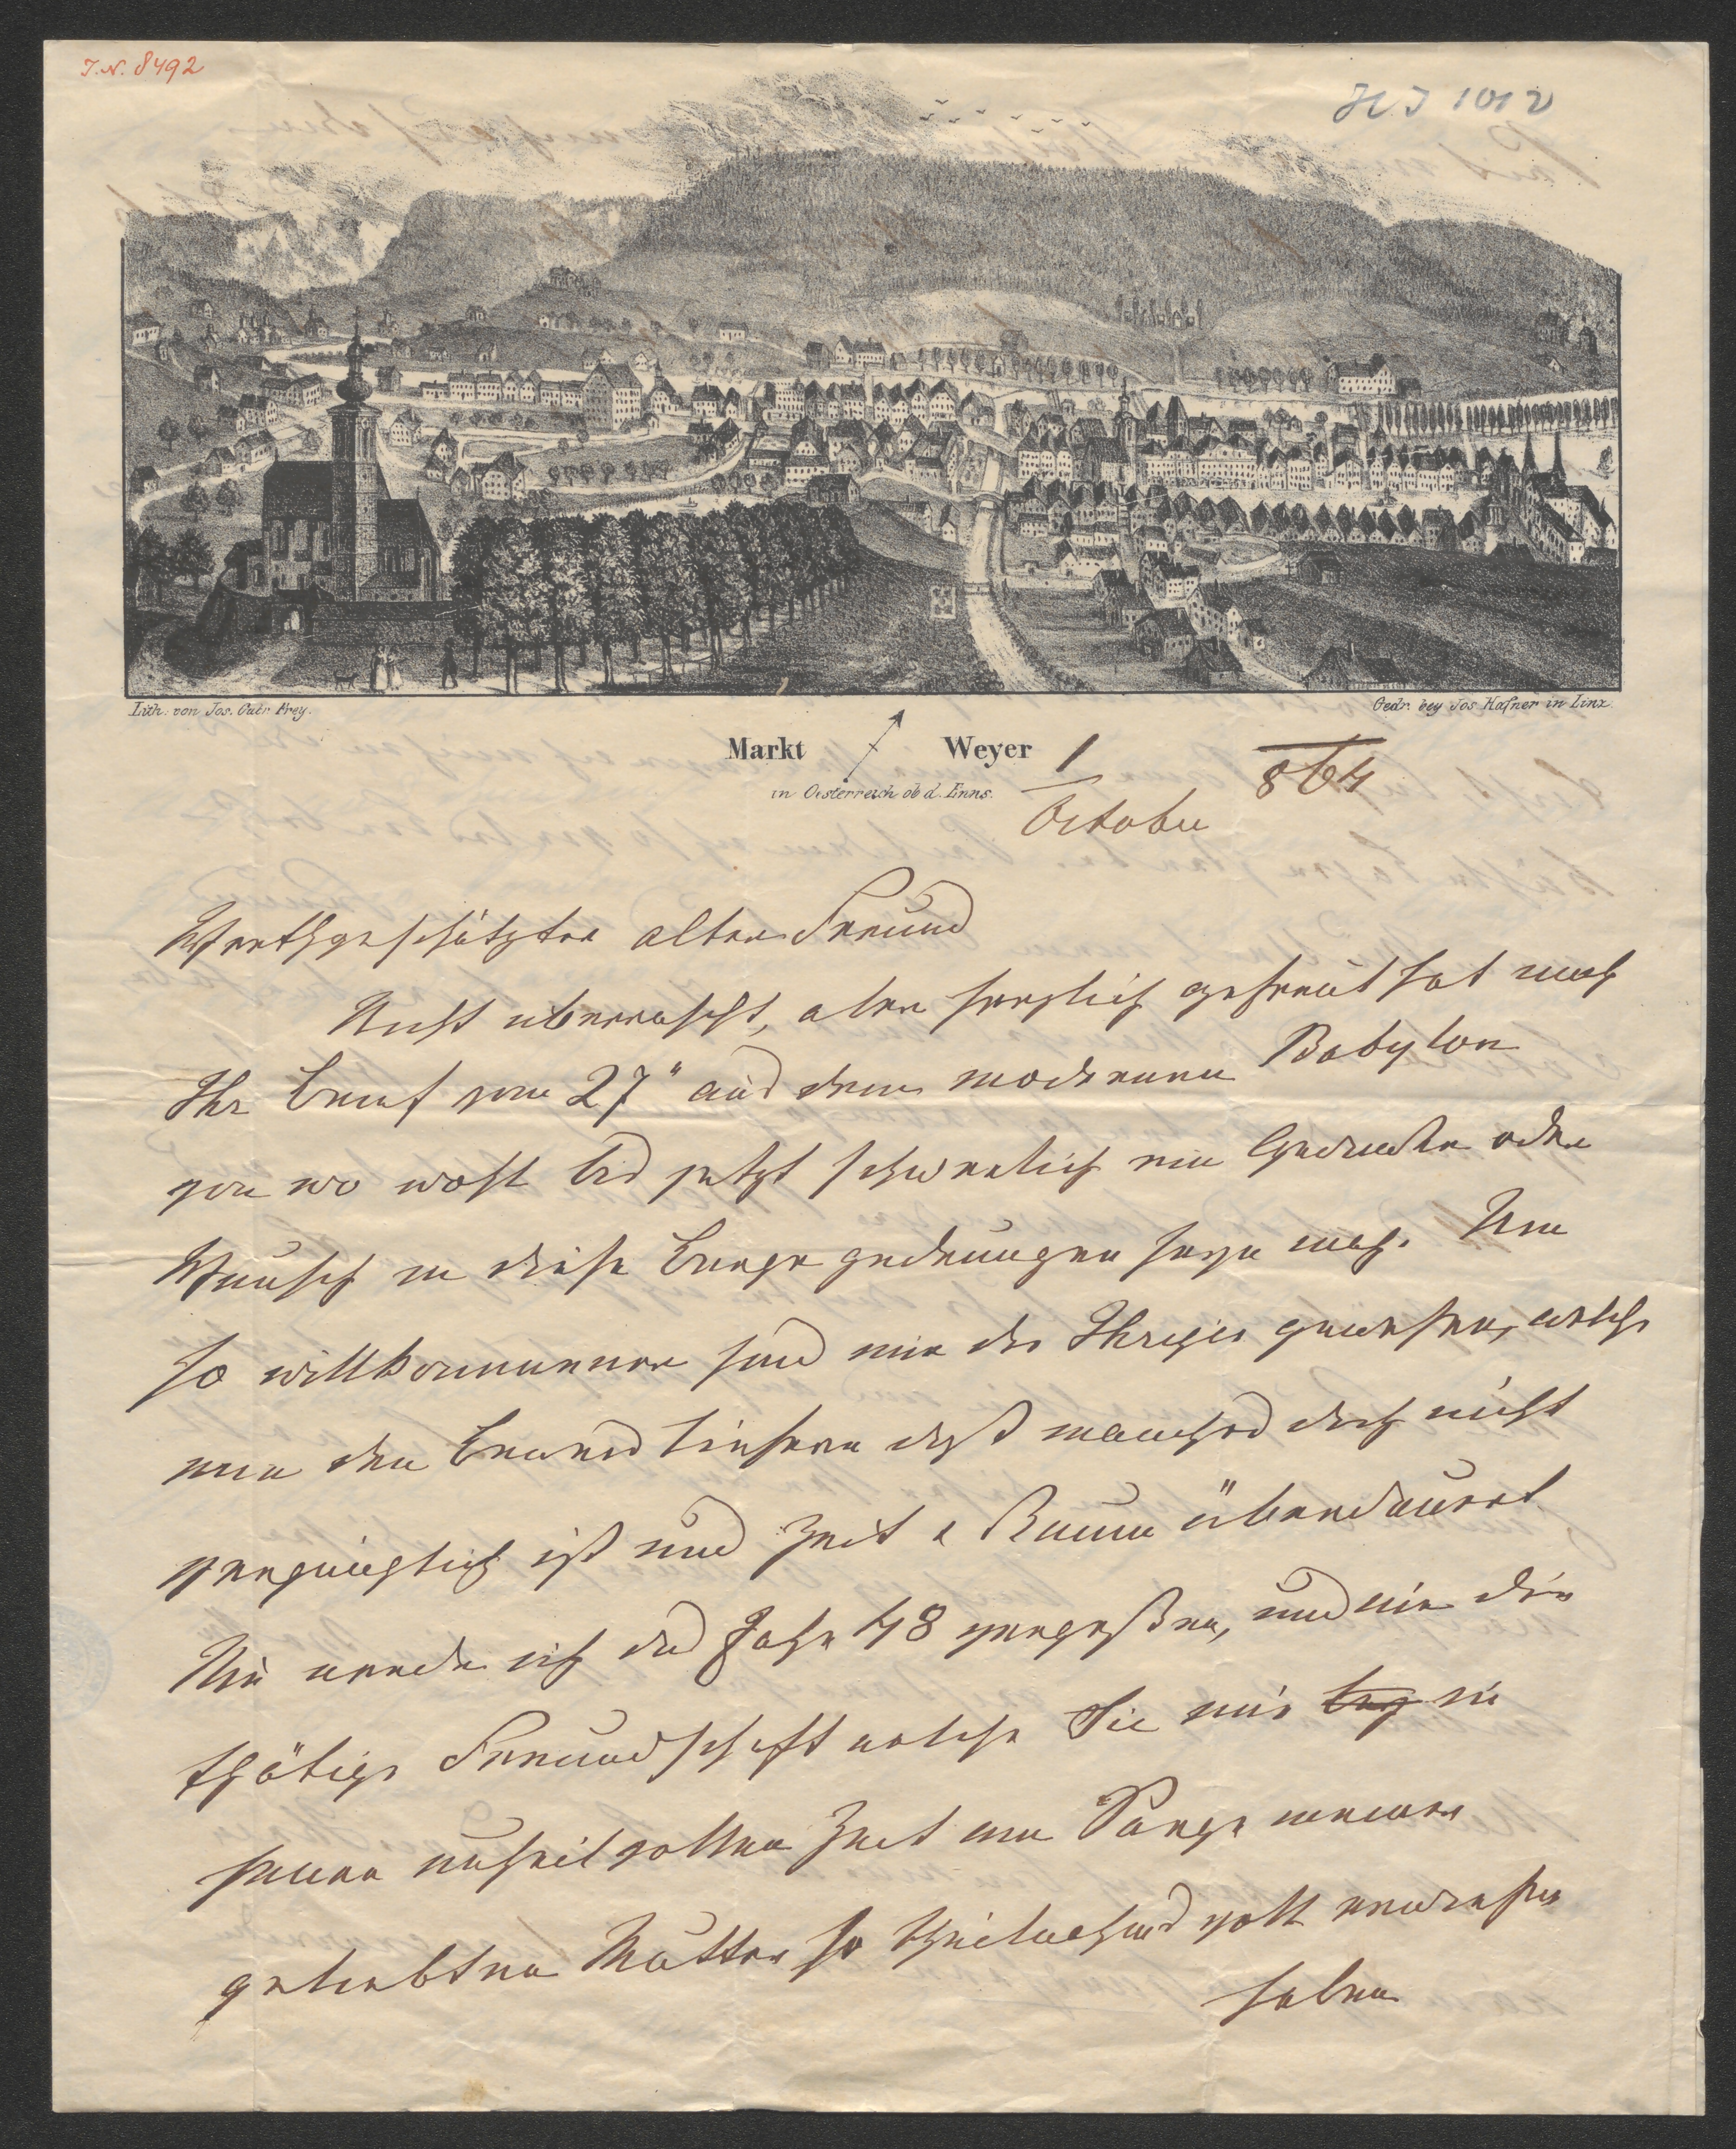 I.N. 8492
H.I 1012
Lith: von Jos. Gabr Frey.
Gedr. bey Jos Hafner in Linz.
Markt Weyer
in Oesterreich ob d. Enns.
1 October 864
Werthgeschätzter alter Freund
Nicht überrascht, aber herzlich gefreut hat mich
Ihr Brief vom 27" aus dem modernen Babylon
von wo wohl bis jetzt schwerlich ein Gedanke oder
Wunsch in diese Berge gedrungen seyn mag. Um
so willkommener sind mir die Ihrigen gewesen, welche
mir den Beweis liefern daß manches doch nicht
vergänglich ist und Zeit & Raum überdauert
Nie werde ich das Jahr 48 vergeßen, und nie die
thätige Freundschaft welche Sie mir bey in
jener unheilvollen Zeit am Sarge meiner
geliebten Mutter so theilnehmend voll erwiesen
haben